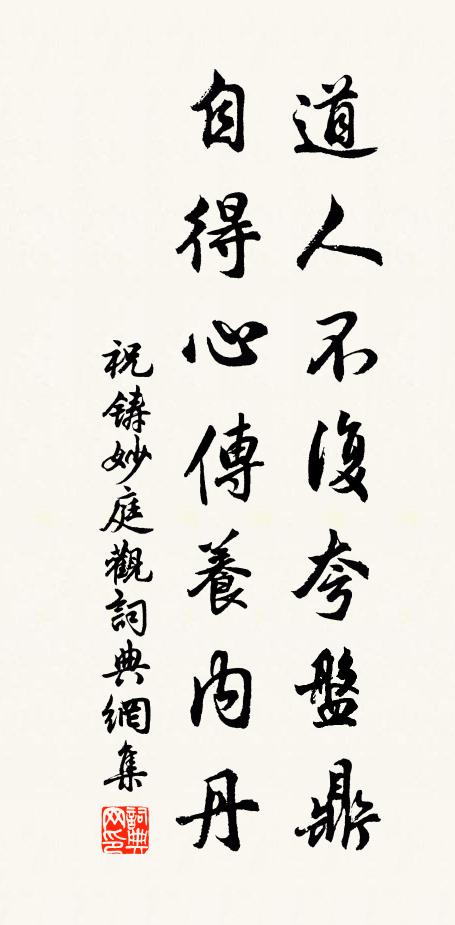 道人不復夸盤鼎
自得心傳養內丹
祝鑄妙庭觀詞典網集
詞典网印